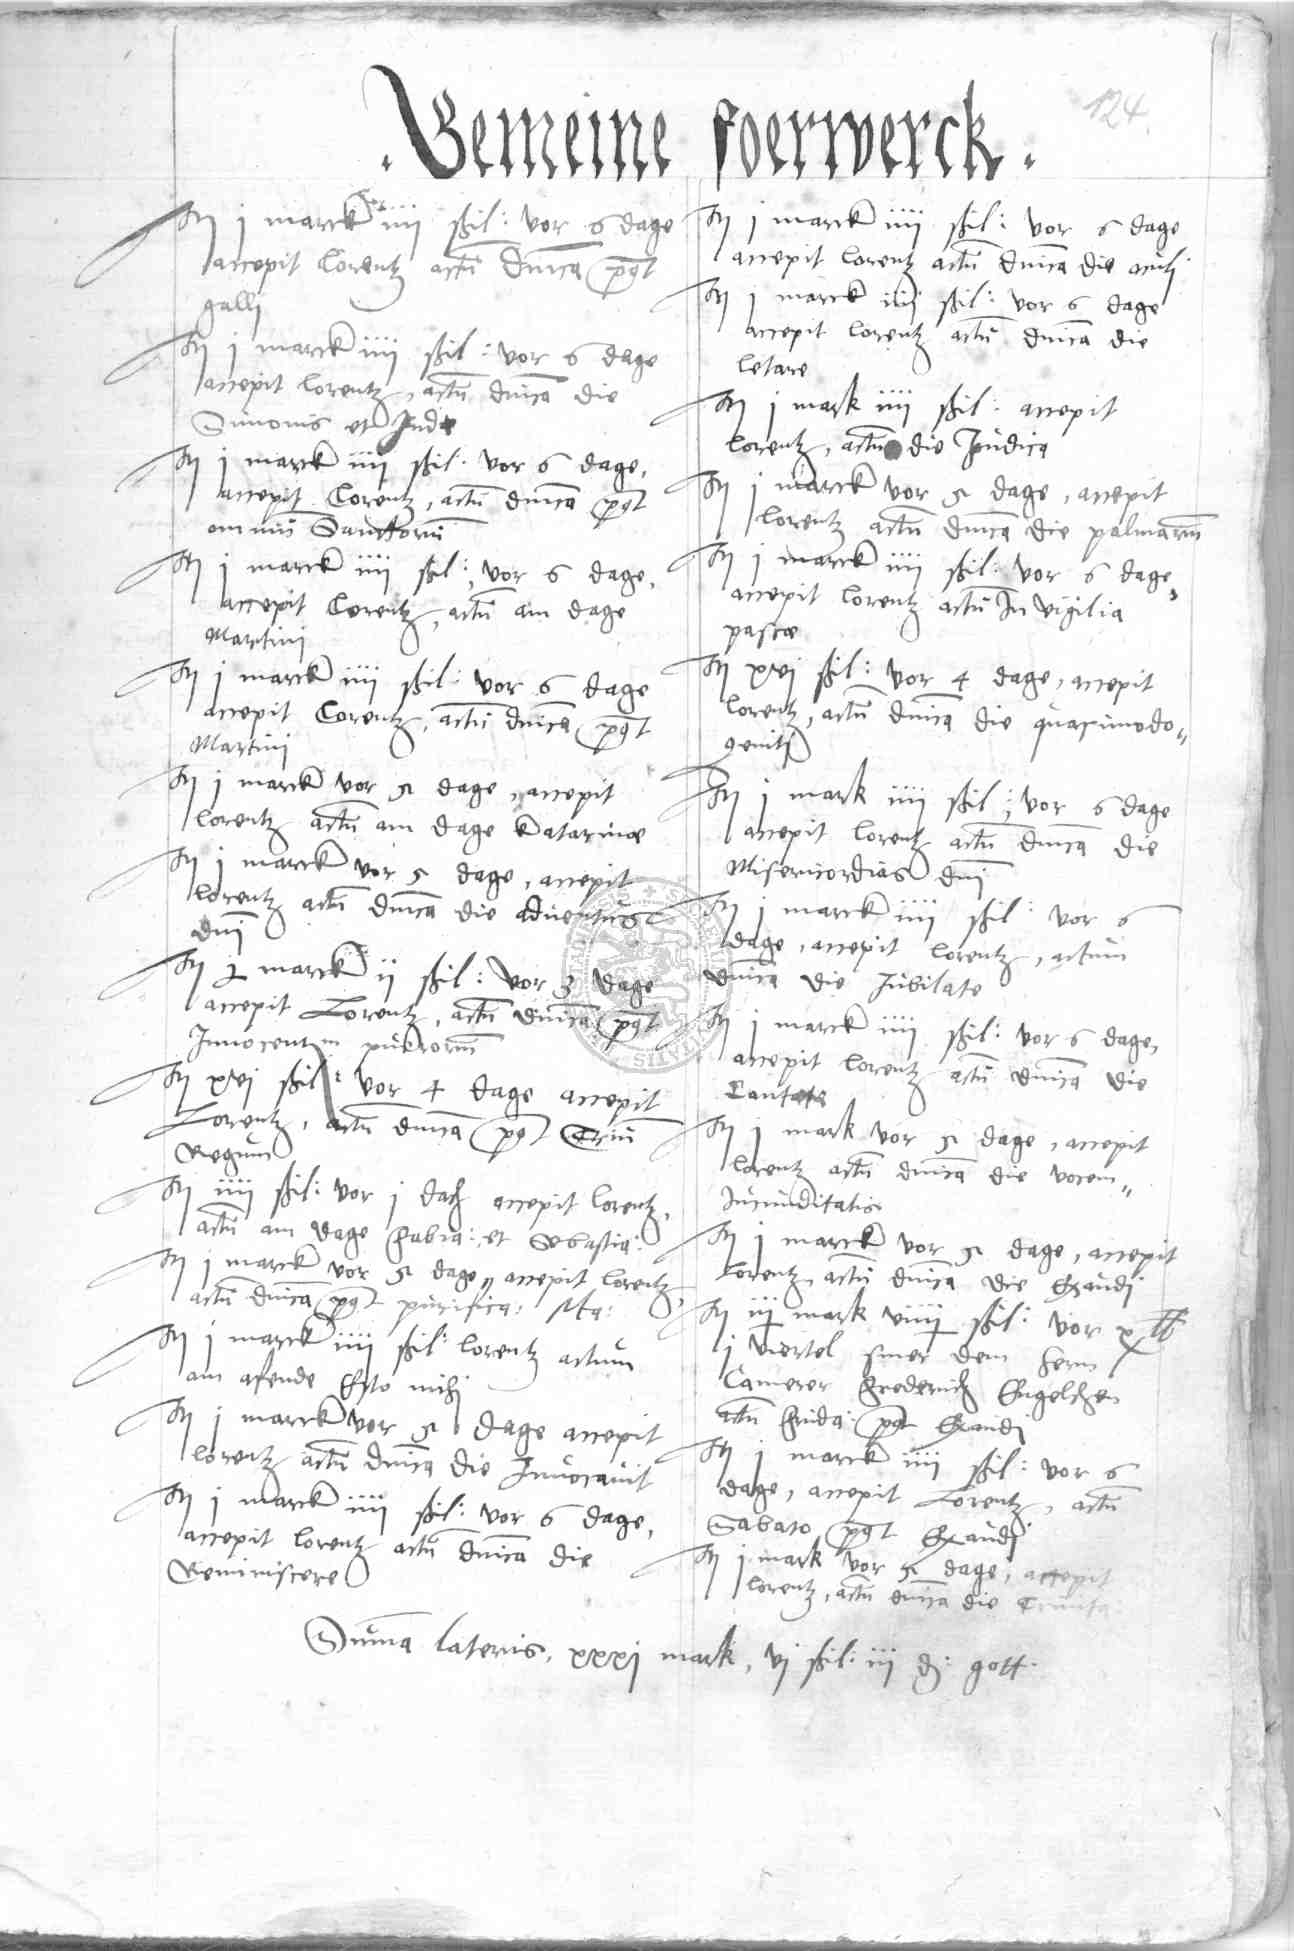 124.
. Gemeine foerwerck .
It j marck iiij ßil: vor 6 dage
accepit Lorentz actū dnica pqt
galli
It j marck iiij ßil: vor 6 dage
accepit lorentz, actū dnica die
Simonis et Jude
It j marck iiij ßil: vor 6 dage,
accepit Lorentz, actū dnica pqt
omniū Sanctorū
It j marck iiij ßil: vor 6 dage,
accepit Lorentz, actū am dage
Martini
It j marck iiij ßil: vor 6 dage
accepit Lorentz, actū dnica pqt
Martini
It j marck vor 5 dage, accepit
lorentz actū am dage Katarinae
It j marck vor 5 dage, accepit
lorentz actū dnica die adventus
dni
It marck ij ßil: vor 3 dage
accepit Lorentz, actū dnica pqt
Innocentm puerorm
It xvj ßil: vor 4 dage accepit
Lorentz, actū dnica pqt Triū
Regum
It iiij ßil: vor j dach accepit lorentz,
actū am dage Fabia: et Sebastia:
It j marck vor 5 dage, accepit lorentz,
actū dnica pqt purifica: Ma:
It j marck iiij ßil: lorentz actum
am afende Esto mihi
It j marck vor 5 dage accepit
lorentz actū dnica die Invocavit
It j marck iiij ßil: vor 6 dage,
accepit lorentz actū dnica die
Reminiscere
It j marck iiij ßil: vor 6 dage
accepit lorentz actū dnica die oculj
It j marck iiij ßil: vor 6 dage
accepit lorentz actū dnica die
letare
It j mark iiij ßil: accepit
lorentz, actū die Judica
It j marck vor 5 dage, accepit
lorentz actū dnica die palmarū
It j marck iiij ßil: vor 6 dage,
accepit lorentz actū In vigilia
pascae
It xvj ßil: vor 4 dage, accepit
lorentz, actū dnica die quasimodo„
genitj
It j mark iiij ßil: vor 6 dage
accepit lorentz actū dnica die
Misericordias dni
It j marck iiij ßil: vor 6
dage, accepit lorentz, actum
dnica die Jubilate
It j marck iiij ßil: vor 6 dage,
accepit lorentz actū dnica die
Cantate
It j mark vor 5 dage, accepit
lorentz actū dnica die vocem„
Jucunditatis
It j marck vor 5 dage, accepit
Lorentz actū dnica die Exaudj
It mark ßil: vor
j viertel smer dem hern
Camerer Frederich Engelschen
actū frida: pqt Exaudj
It j marck iiij ßil: vor 6
dage, accepit Lorentz, actū
Sabato pqt Exaudj
It j mark vor 5 dage, accepit
lorentz, actū dnica die Trinita:
Suma lateris, xxxj mark, vj ßil: iij d: gott.